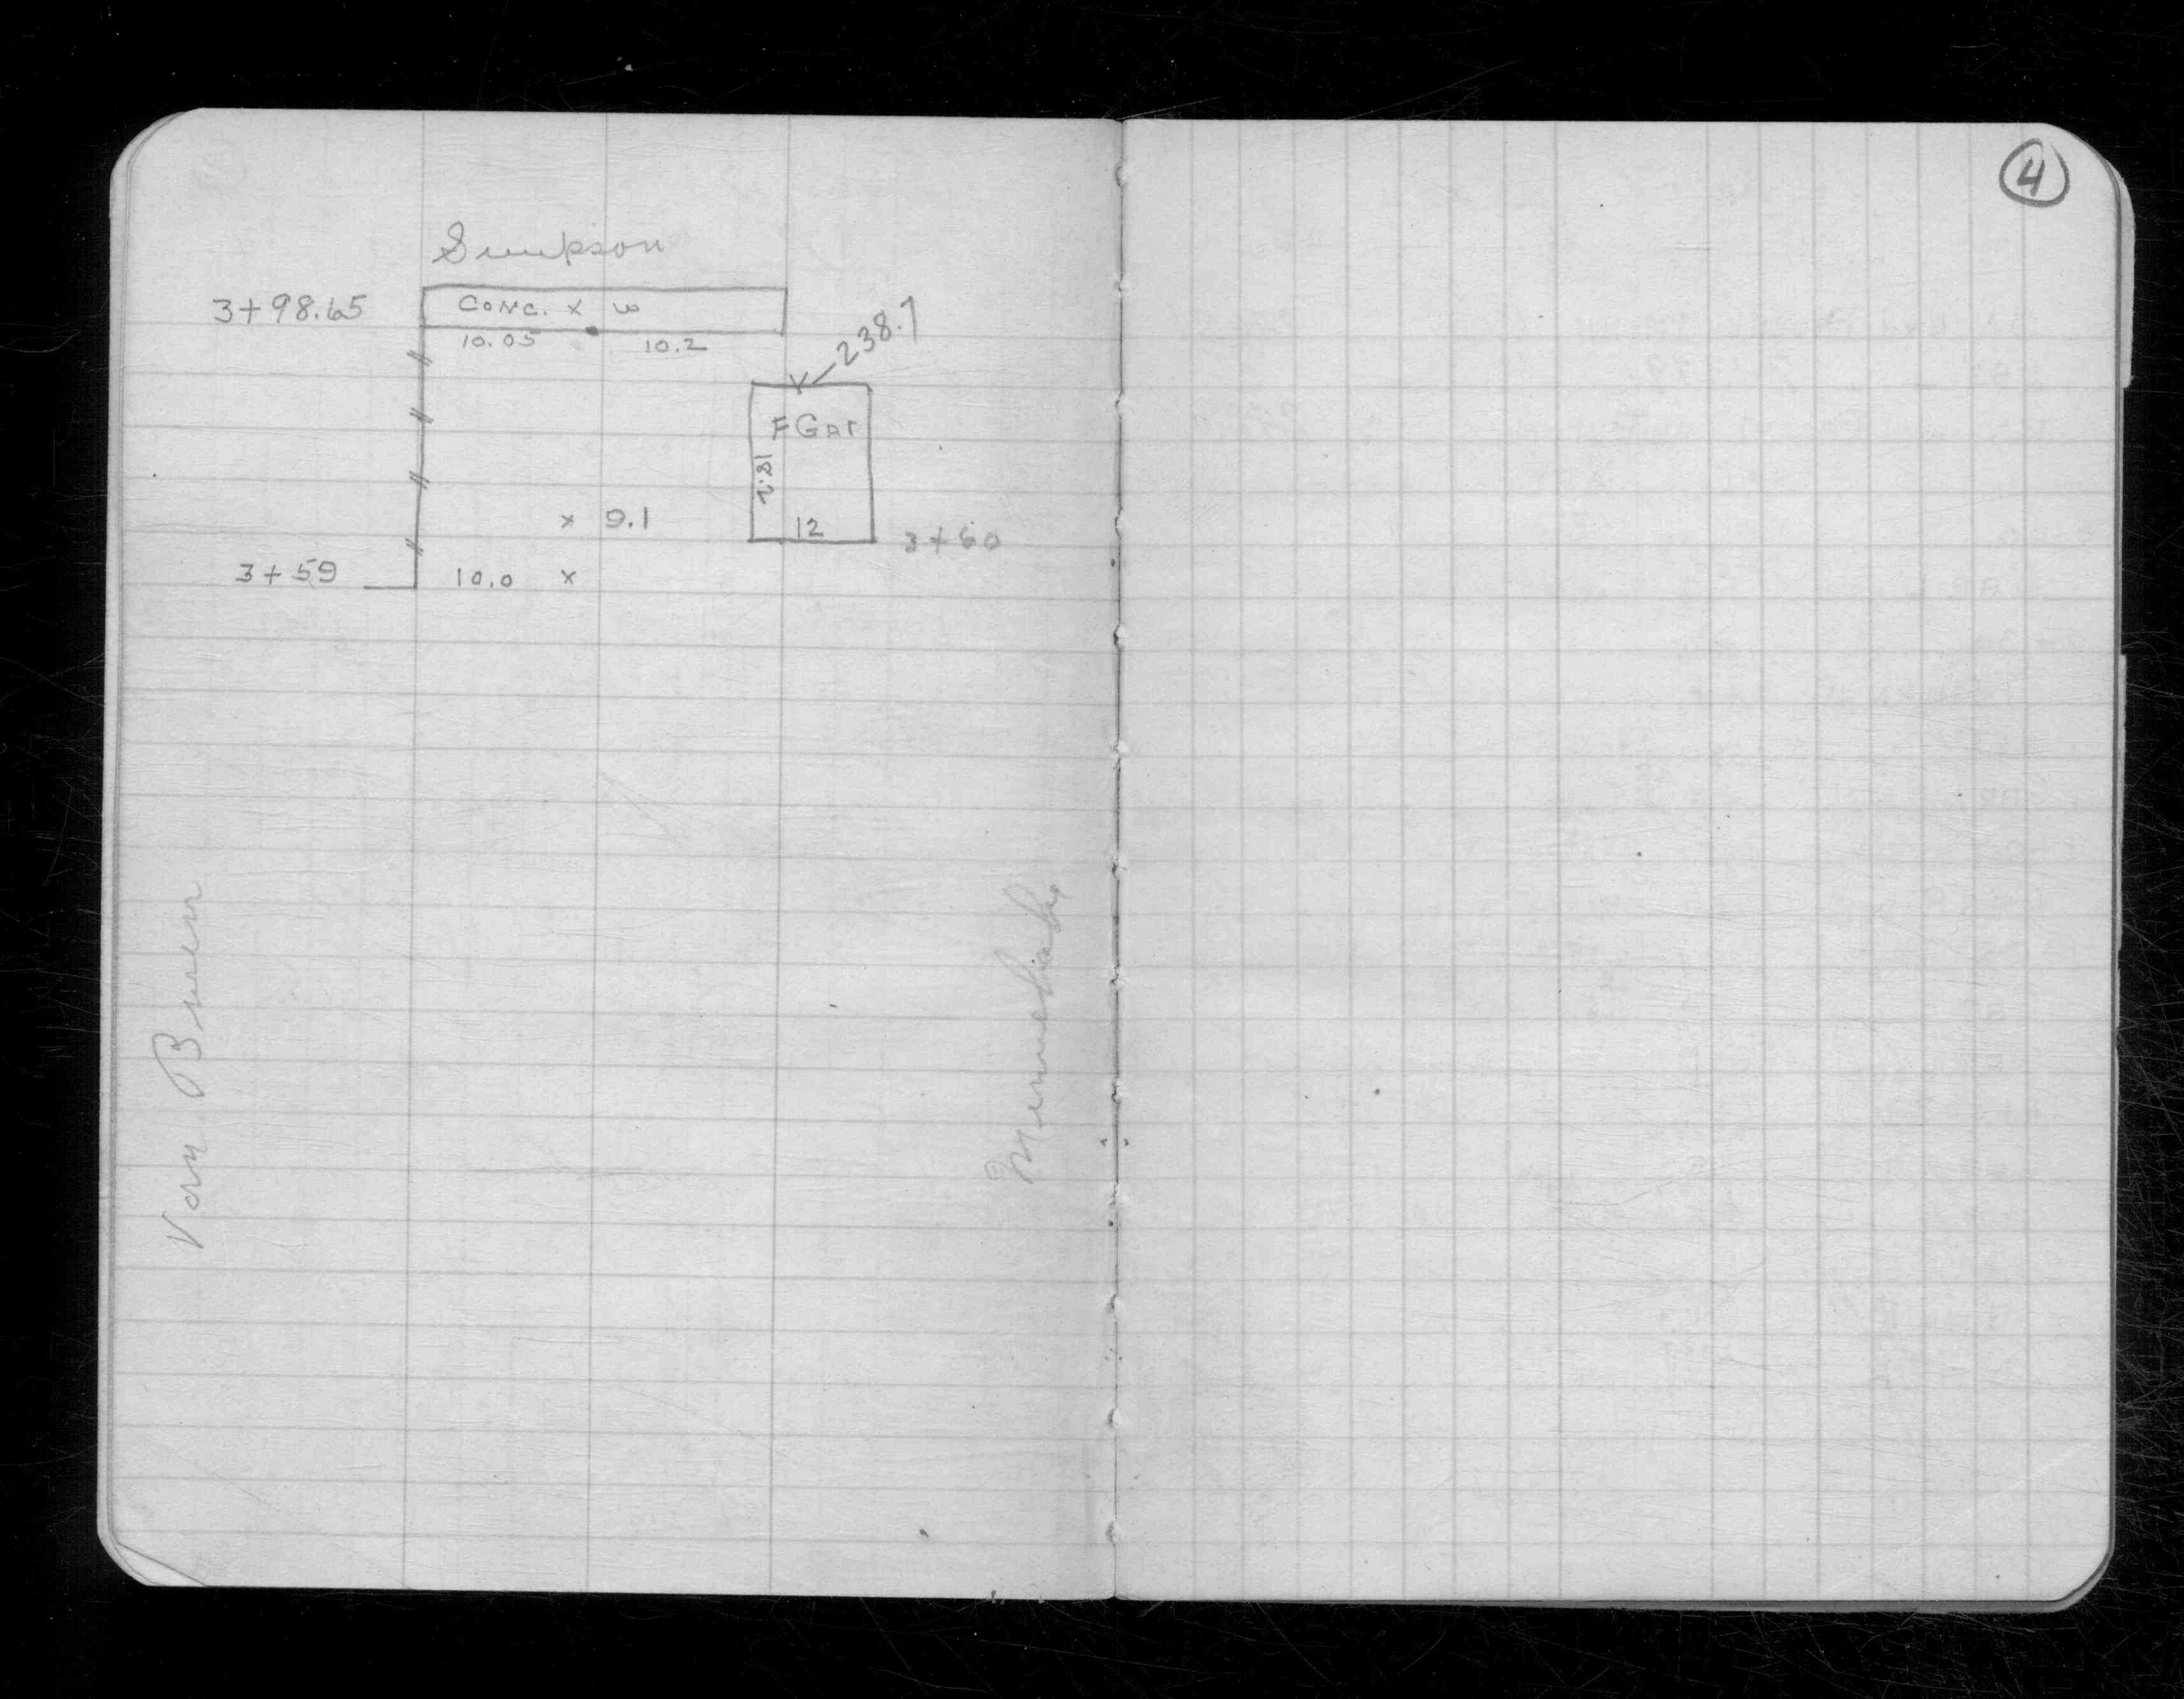 4
Simpson
3+98.65 CONC. x W
10.05 10.2
238.7
F GAR
18.2
x 9.1
12
3+60
3+59 10.0 x
Van Buren
Minnehaha